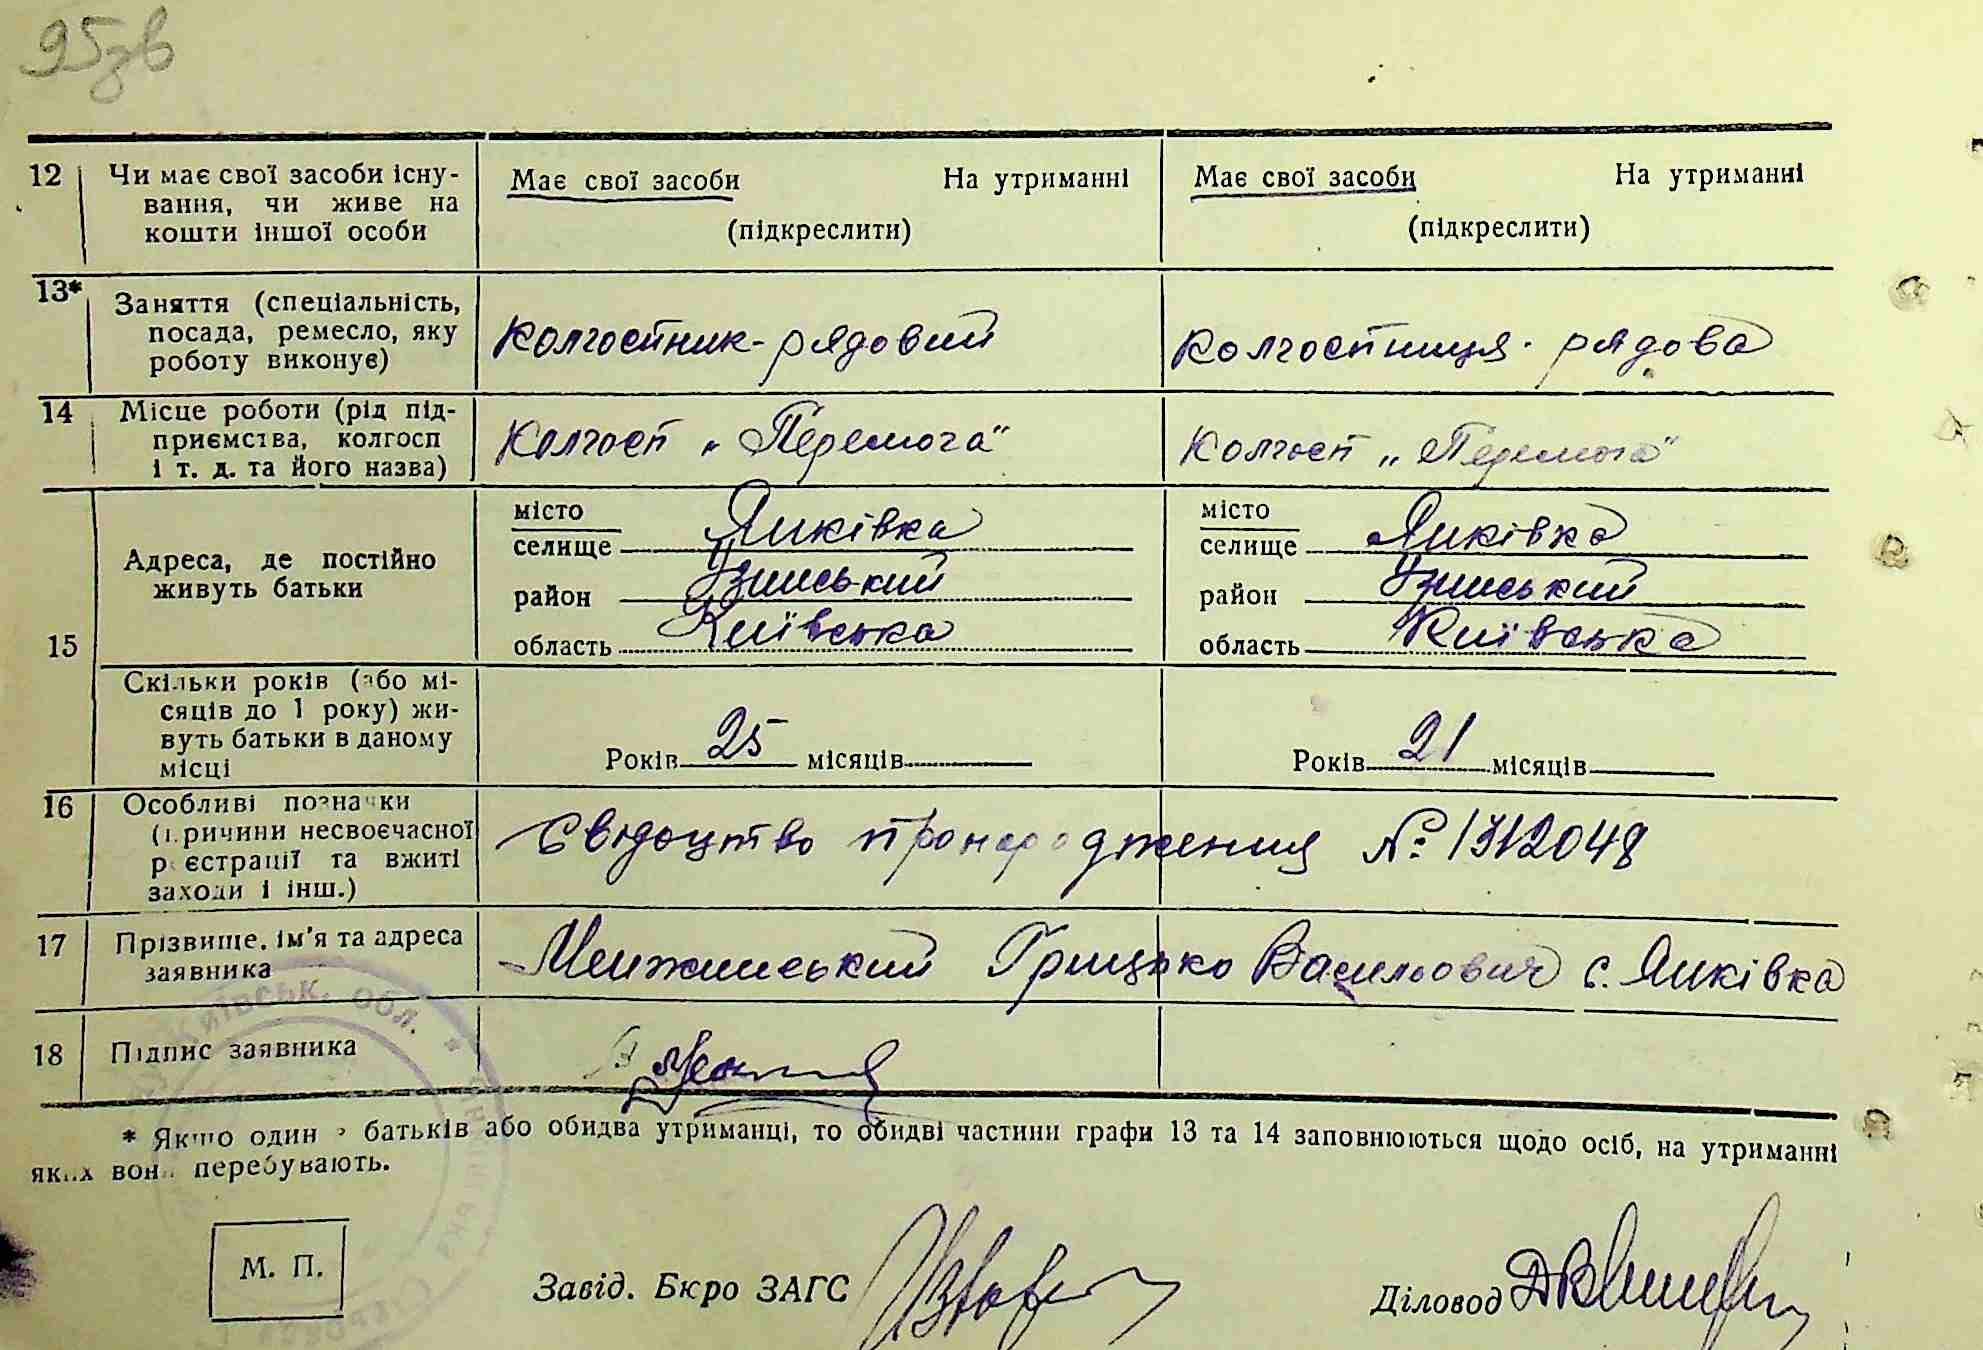 95зв
12 Чи має свої засоби існу-
вання, чи живе на
кошти іншої особи
Має свої засоби На утриманні
(підкреслити)
Має свої засоби На утриманні
(підкреслити)
13* Заняття (спеціальність,
посада, ремесло, яку
роботу виконує)
Колгоспник-рядовий
Колгоспниця-рядова
14 Місце роботи (рід під-
приємства, колгосп
і т. д. та його назва)
Колгосп „Перемога"
Колгосп „Перемога"
15
Адреса, де постійно
живуть батьки
місто
селище Янківка
район Узинський
область Київська
місто
селище Янківка
район Узинський
область Київська
Скільки років (або мі-
сяців до 1 року) жи-
вуть батьки в даному
місці
Років 25 місяців
Років 21 місяців
16 Особливі позначки
(причини несвоєчасної
реєстрації та вжиті
заходи і інш.)
Свідоцтво про народження №1312048
17 Прізвище, ім'я та адреса
заявника
Менжинський Грицько Васильович с. Янківка
18 Підпис заявника
* Якщо один з батьків або обидва утриманці, то обидві частини графи 13 та 14 заповнюються щодо осіб, на утриманні
яких вони перебувають.
Київськ. обл.
М. П.
Завід. Бюро ЗАГС
Діловод